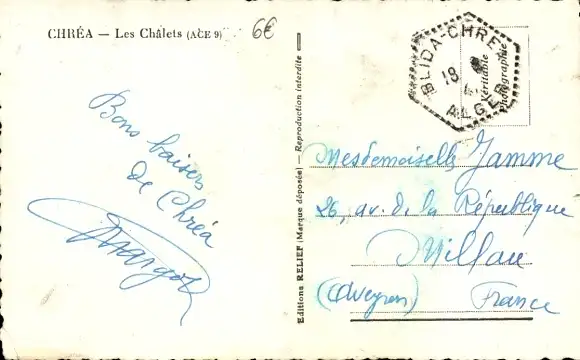 CHRÉA — Les Châlets (ACE 9)
6€
Bons baisers
de Chréa
Margot
Editions RELIEF (Marque déposée) — Reproduction interdite
BLIDA-CHRÉA
18
ALGER
Véritable
photographie
Mesdemoiselles Jamme
26, av. de la République
Millau
(Aveyron) France